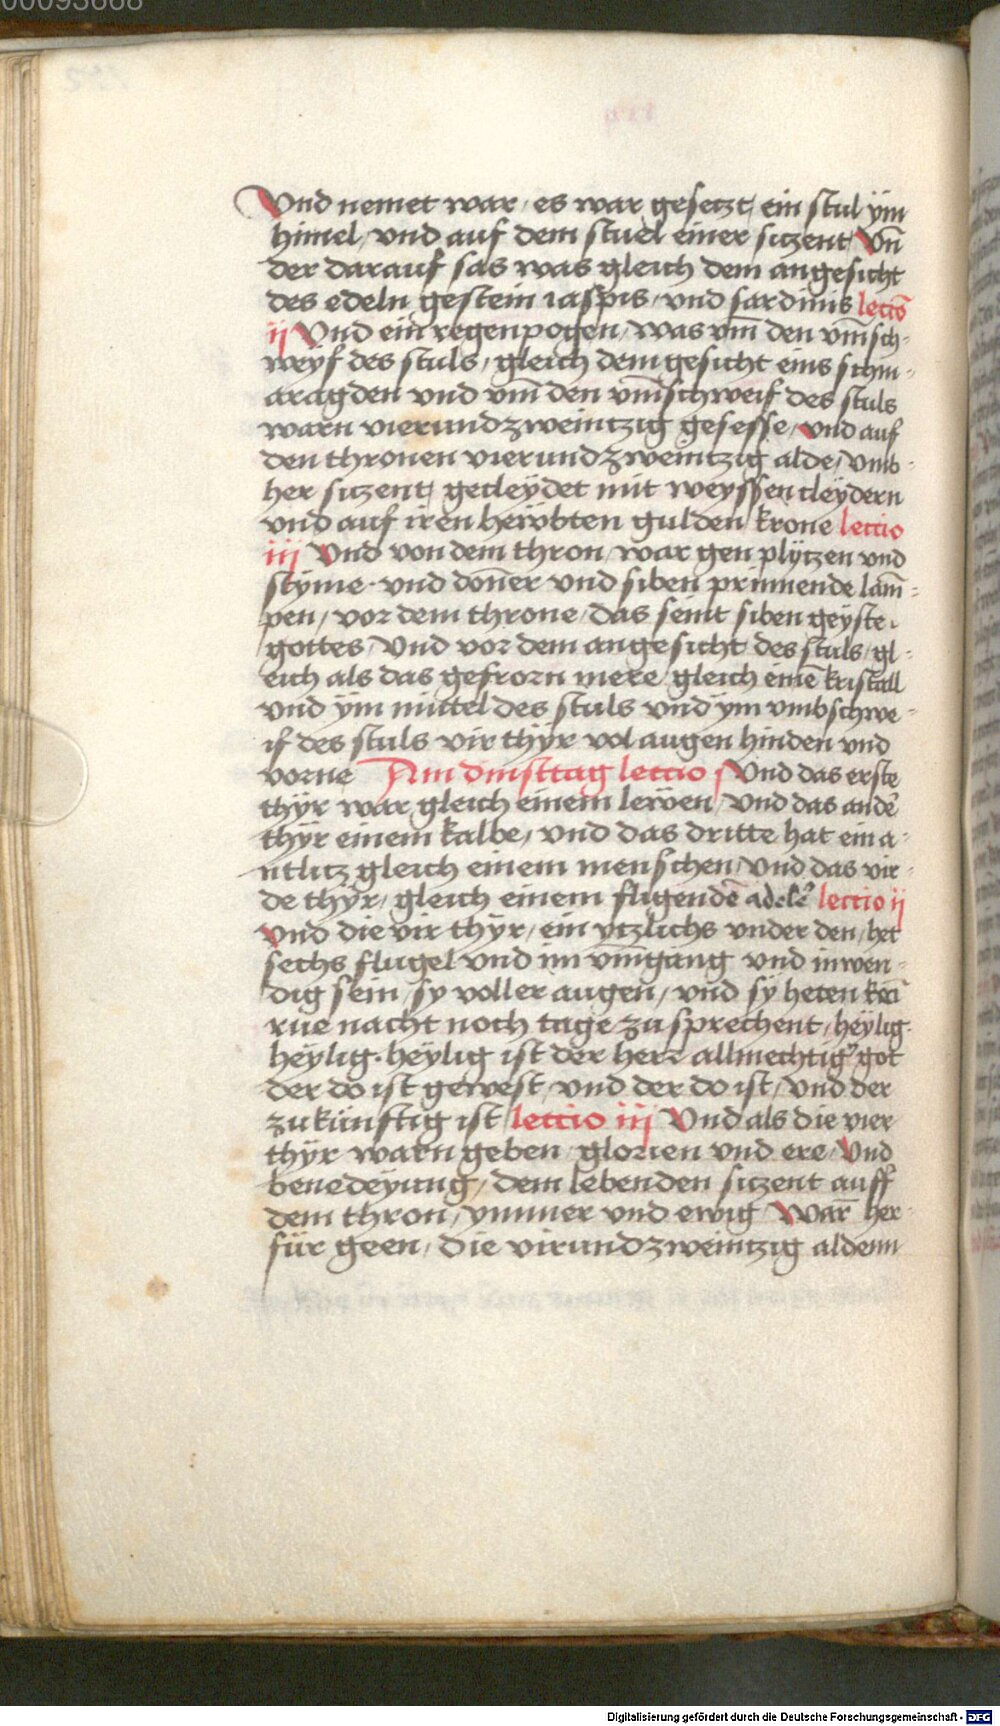 00093668
Vnd nemet war / es war gesetzt / ein stul ÿm
himel / vnd auf dem stuel einer siczent / Vn̄
der darauf sas was gleich dem angesicht
des edeln gestein iaspis / vnd sardinis lectō
ij Vnd ein regenpogen / was vm̄ den vm̄sch-
weyf des stuls / gleich dem gesicht eins schm-
aragden vnd vm̄ den vm̄schweif des stuls
warn vierundzweintzig gesesse / vnd auf
den thronen vierundzweintzig alde / vmb-
her siczent / gecleydet mit weyssen cleydern
vnd auf iren hewbten gulden krone lectio
iij Vnd von dem thron / war gen plytzen vnd
styme · vnd don̄er vnd siben prinnende lam̄-
pen / vor dem throne / das seint siben geyste
gottes / Vnd vor dem angesicht des stuls / gl-
eich als das gefrorn mere / gleich einē kristall
vnd ÿm mittel des stuls vnd ÿm vmbschwe-
if des stuls vir thÿr vol augen hinden vnd
vorne Am dinsttag lectio j Vnd das erste
thÿr war gleich einem lewen / vnd das andē
thÿr einem kalbe / vnd das dritte hat ein a-
ntlitz gleich einem menschen / vnd das vir-
de thÿr / gleich einem fligendē adelē lectio ij
Vnd die vir thÿr / ein ytzlichs vnder den / het
sechs flugel vnd im vm̄gang vnd inwen-
dig sein / sy voller augen / vnd sy heten kein
rue nacht noch tage zu sprechent / heÿlig·
heÿlig · heÿlig ist der herr allmechtig᾽ got
der do ist gewest / vnd der do ist / vnd der
zukünftig ist lectio iij Vnd als die vier
thÿr warn geben / glorien vnd ere / Vnd
benedeÿung / dem lebenden siczent auff
dem thron / ymmer vnd ewig Warn̄ her-
für geen / die virundzweintzig aldenn
Digitalisierung gefördert durch die Deutsche Forschungsgemeinschaft - DFG